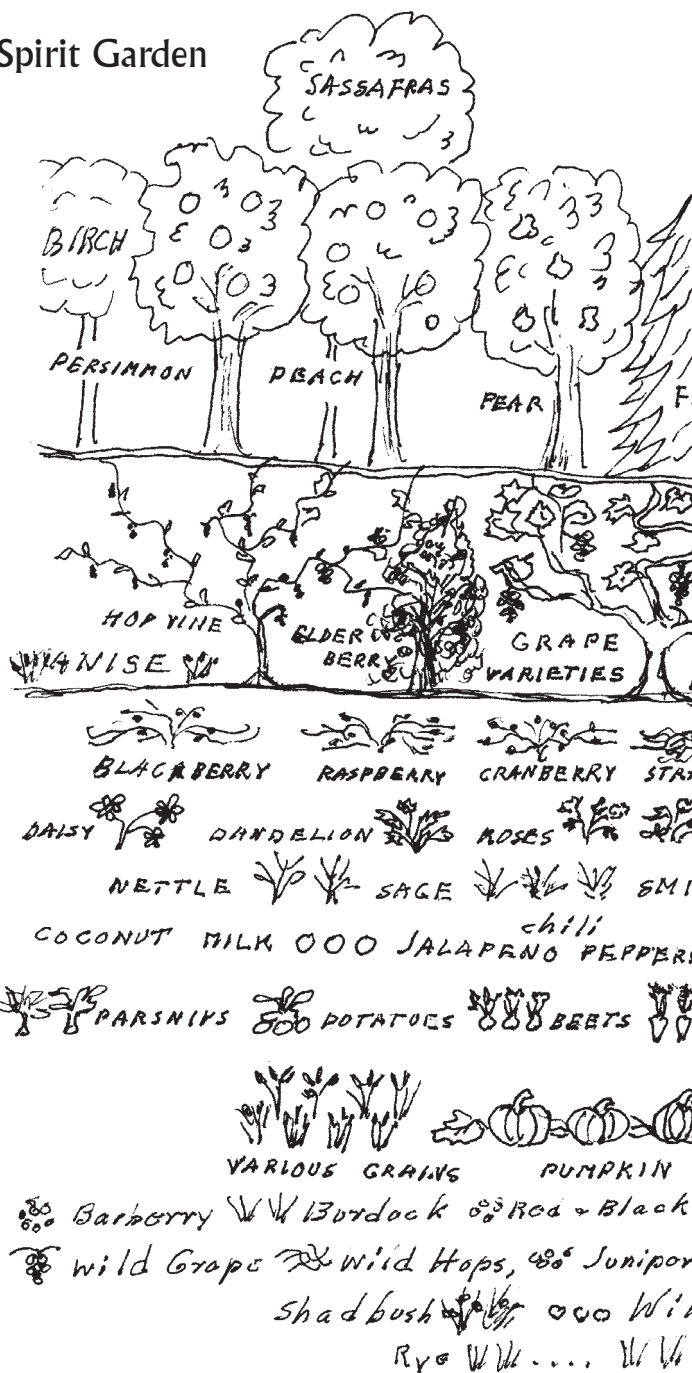 Spirit Garden
SASSAFRAS
BIRCH
PERSIMMON PEACH PEAR F
HOP VINE
ELDER
BERRY
GRAPE
VARIETIES
ANISE
BLACKBERRY RASPBERRY CRANBERRY STRA
DAISY DANDELION ROSES
NETTLE SAGE SMI
chili
COCONUT MILK JALAPENO PEPPERS
PARSNIPS POTATOES BEETS
VARIOUS GRAINS PUMPKIN
Barberry Burdock Red & Black
Wild Grape Wild Hops, Juniper
Shadbush Wi
Rye ....